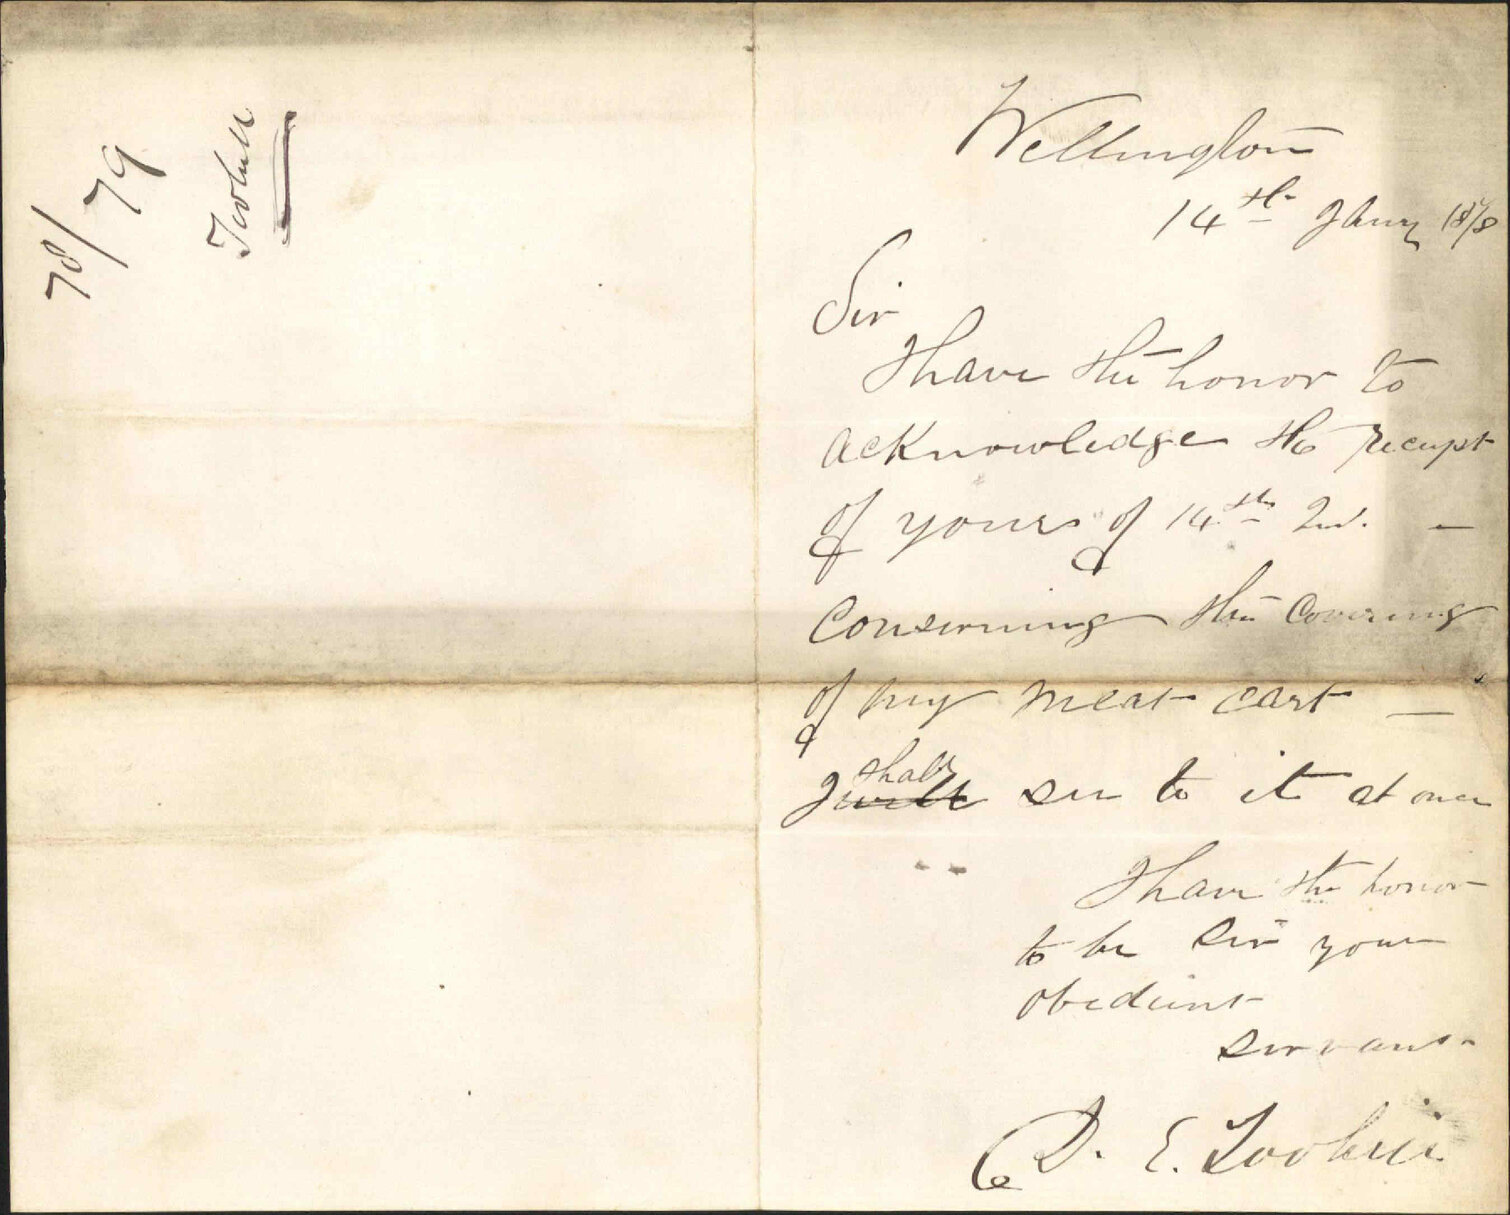 78/79
Wellington
14th Jany 1878
Sir
I have the honor to
acknowledge the receipt
of yours of 14th Inst. —
Conserning the Covering
of my meat cart —
I will shall see to it at once
I have the honor
to be Sir your
obedient
servant
D. E.